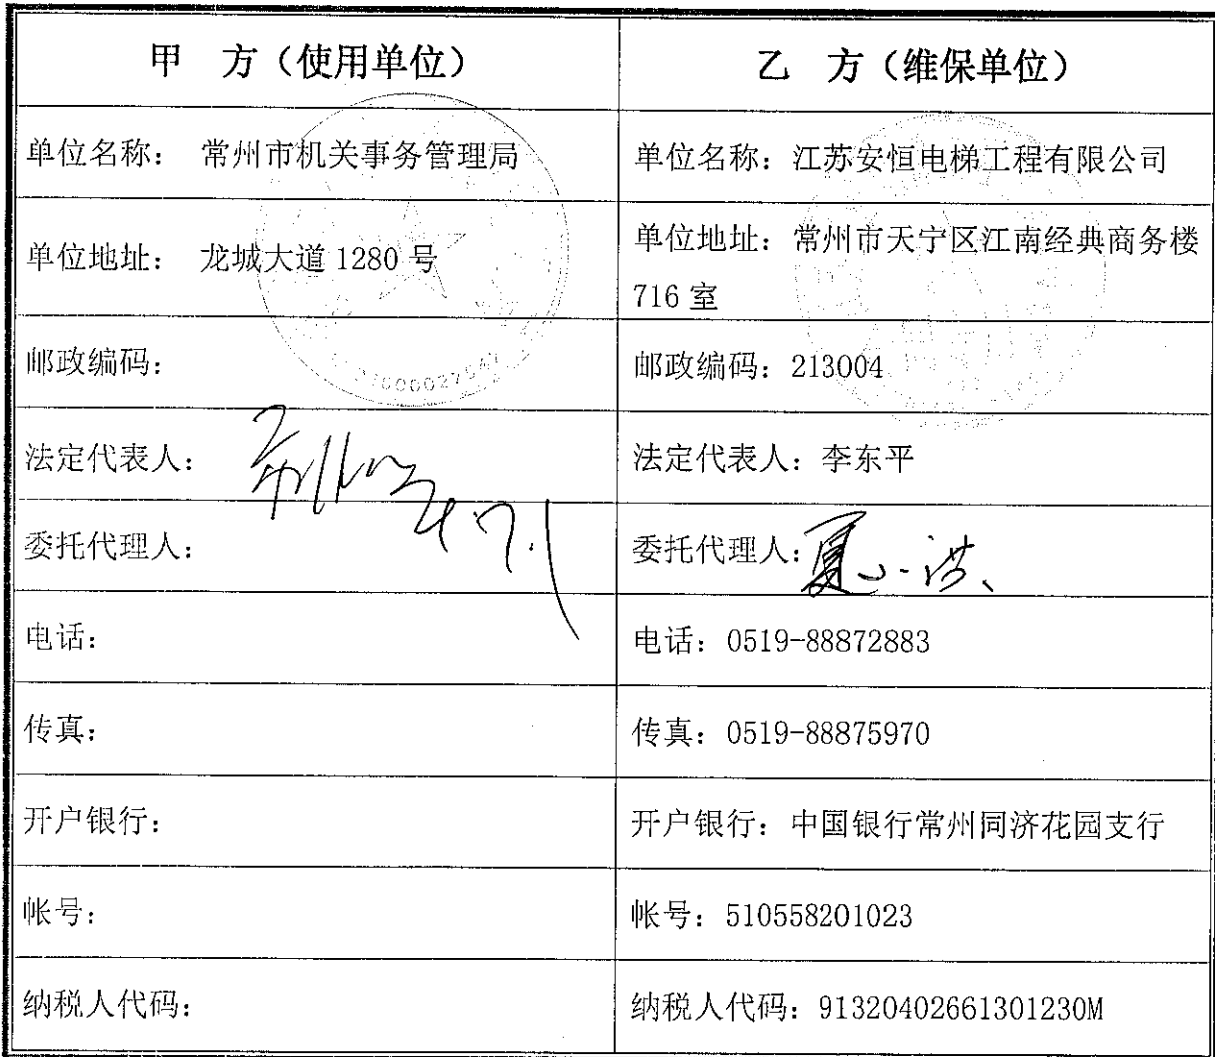 甲 方（使用单位）
乙 方（维保单位）
单位名称： 常州市机关事务管理局
单位名称：江苏安恒电梯工程有限公司
单位地址： 龙城大道 1280 号
单位地址：常州市天宁区江南经典商务楼
716 室
邮政编码：
邮政编码：213004
法定代表人：
法定代表人：李东平
委托代理人：
委托代理人：夏小洪
电话：
电话：0519-88872883
传真：
传真：0519-88875970
开户银行：
开户银行：中国银行常州同济花园支行
帐号：
帐号：510558201023
纳税人代码：
纳税人代码：91320402661301230M